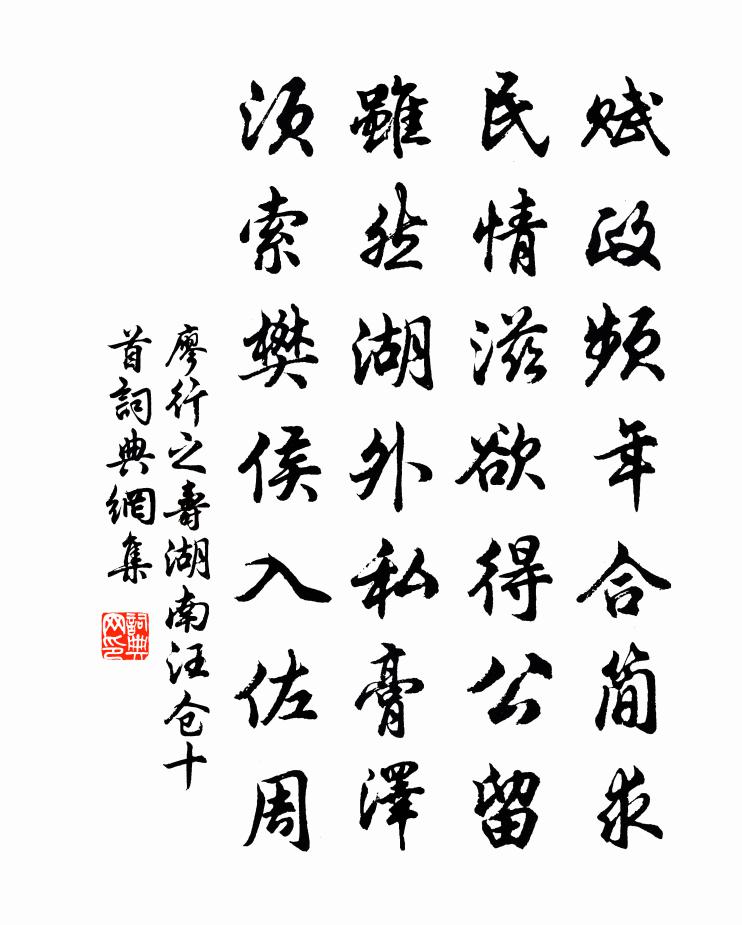 赋政频年合简求
民情滋欲得公留
雖然湖外私膏澤
須索樊侯入佐周
廖行之壽湖南汪仓十
首詞典網集
詞典网印